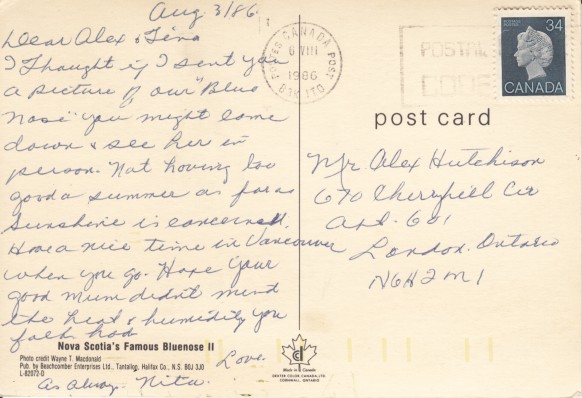 Aug 3/86
Dear Alex & Tina
I Thought if I sent you
a picture of our "Blue
Nose" you might come
down & see her in
person. Not having too
good a summer as far as
Sunshine is concerned.
Have a nice time in Vancouver
when you go. Hope your
good Mum didn't mind
the heat & humidity you
folks had
Love.
As always
Nova Scotia's Famous Bluenose II
Photo credit Wayne T. Macdonald
Pub. by Beachcomber Enterprises Ltd., Tantallon, Halifax Co., N.S. B0J 3J0
L-82072-D
POSTES CANADA POST
6 VIII
1986
B3K 1T0
POSTAL
CODE
34
CANADA
post card
Mr Alex Hutchison
670 Cherryhill Cir
Apt. 601
London. Ontario
N6H 2M1
Made in Canada
DEXTER COLOR CANADA LTD.
CORNWALL, ONTARIO